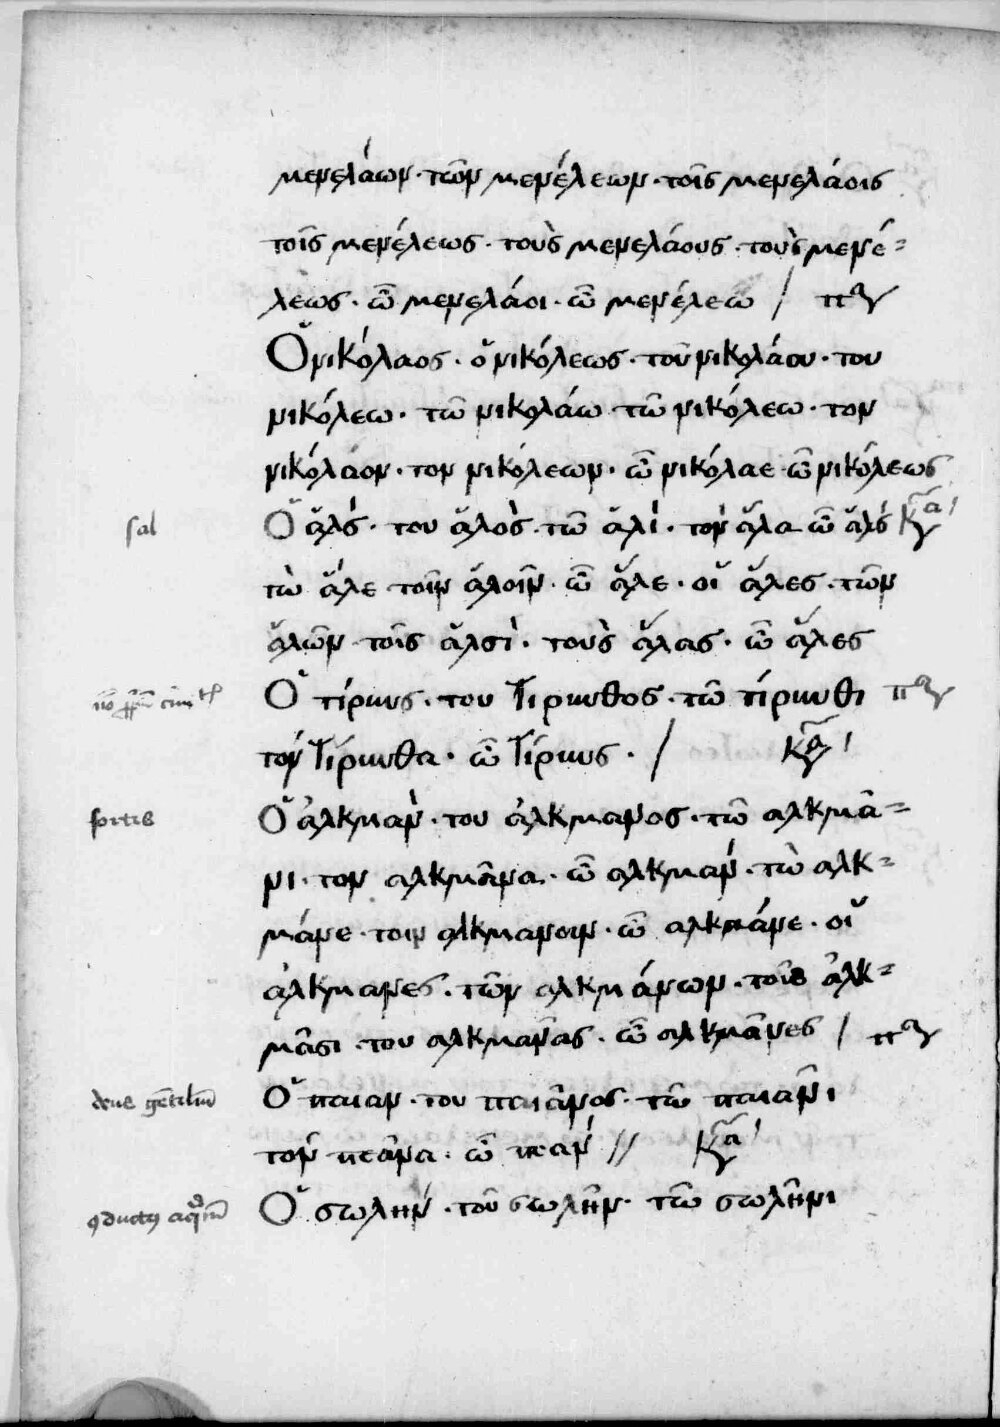 μενελάων· τῶν μενέλεων· τοῖς μενελάοις
τοῖς μενέλεως· τοὺς μενελάους· τοὺς μενέ=
λεως· ὦ μενελάοι· ὦ μενέλεω /
Ὁ νικόλαος· ὁ νικόλεως· τοῦ νικολάου· του
νικόλεω· τῶ νικολάω τῶ νικόλεω· τον
νικόλαον· τον νικόλεων· ὦ νικόλαε ὦ νικόλεως
sal
Ὁ ἅλς· του ἁλὸς· τῶ ἁλὶ· τὸν ἅλα ὦ ἅλς
τὼ ἅλε τοῖν ἁλοῖν· ὦ ἅλε· οἱ ἅλες· τῶν
ἁλῶν τοῖς ἁλσὶ· τοὺς ἅλας· ὦ ἅλες
Ὁ τίρινς· του Τίρινθος· τῶ τίρινθι
τόν Τίρινθα· ὦ Τίρινς· /
fortis
Ὁ ἀλκμαν· του ἀλκμανος· τῶ αλκμᾶ=
νι· τον αλκμᾶνα· ὦ αλκμαν· τὼ αλκ=
μάνε· τοιν αλκμανοιν· ὦ αλκμάνε· οἱ
ἀλκμανες· τῶν αλκμάνων· τοῖς ἀλκ=
μᾶσι· του αλκμανᾶς· ὦ αλκμᾶνες /
deus gētiliū
Ὁ παιαν· του παιᾶνος· τῶ παιᾶνι
τόν πεᾶνα· ὦ πεαν //
Ὁ σωλην· τοῦ σωλῆν· τῶ σωλῆνι